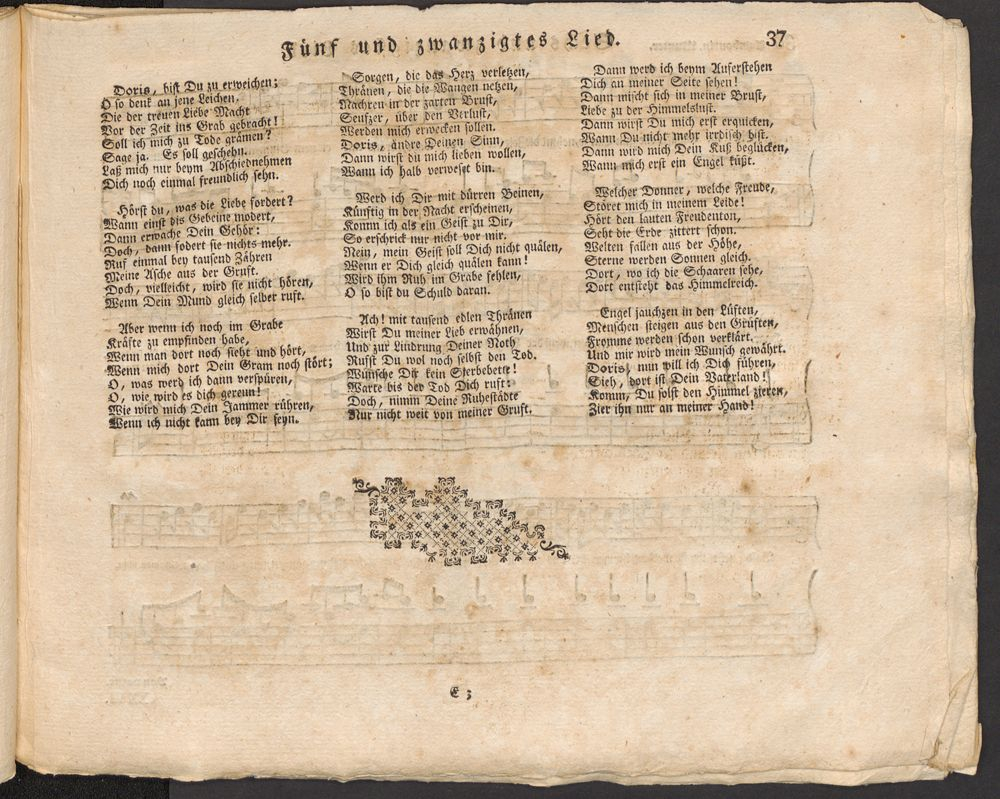 Fünf und zwanzigtes Lied.
37
Doris, bist Du zu erweichen;
O so denk an jene Leichen,
Die der treuen Liebe Macht
Vor der Zeit ins Grab gebracht!
Soll ich mich zu Tode grämen?
Sage ja. Es soll geschehn.
Laß mich nur beym Abschiednehmen
Dich noch einmal freundlich sehn.
Hörst du, was die Liebe fordert?
Wann einst dis Gebeine modert,
Dann erwache Dein Gehör:
Doch, dann fodert sie nichts mehr.
Ruf einmal bey tausend Zähren
Meine Asche aus der Gruft.
Doch, vielleicht, wird sie nicht hören,
Wenn Dein Mund gleich selber ruft.
Aber wenn ich noch im Grabe
Kräfte zu empfinden habe,
Wenn man dort noch sieht und hört,
Wenn mich dort Dein Gram noch stört;
O, was werd ich dann verspüren,
O, wie wird es dich gereun!
Wie wird mich Dein Jammer rühren,
Wenn ich nicht kann bey Dir seyn.
Sorgen, die das Herz verletzen,
Thränen, die die Wangen netzen,
Nachreu in der zarten Brust,
Seufzer, über den Verlust,
Werden mich erwecken sollen.
Doris, ändre Deinen Sinn,
Dann wirst du mich lieben wollen,
Wann ich halb verweset bin.
Werd ich Dir mit dürren Beinen,
Künftig in der Nacht erscheinen,
Komm ich als ein Geist zu Dir,
So erschrick nur nicht vor mir.
Nein, mein Geist soll Dich nicht quälen,
Wenn er Dich gleich quälen kann!
Wird ihm Ruh im Grabe fehlen,
O so bist du Schuld daran.
Ach! mit tausend edlen Thränen
Wirst Du meiner Lieb erwähnen,
Und zur Lindrung Deiner Noth
Rufst Du wol noch selbst den Tod.
Wünsche Dir kein Sterbebette!
Warte bis der Tod Dich ruft:
Doch, nimm Deine Ruhestädte
Nur nicht weit von meiner Gruft.
Dann werd ich beym Auferstehen
Dich an meiner Seite sehen!
Dann mischt sich in meiner Brust,
Liebe zu der Himmelslust.
Dann wirst Du mich erst erquicken,
Wann Du nicht mehr irrdisch bist.
Dann wird mich Dein Kuß beglücken,
Wann mich erst ein Engel küßt.
Welcher Donner, welche Freude,
Störet mich in meinem Leide!
Hört den lauten Freudenton,
Seht die Erde zittert schon.
Welten fallen aus der Höhe,
Sterne werden Sonnen gleich.
Dort, wo ich die Schaaren sehe,
Dort entsteht das Himmelreich.
Engel jauchzen in den Lüften,
Menschen steigen aus den Grüften,
Fromme werden schon verklärt.
Und mir wird mein Wunsch gewährt.
Doris, nun will ich Dich führen,
Sieh, dort ist Dein Vaterland!
Komm, Du solst den Himmel zieren,
Zier ihn nur an meiner Hand!
E 3